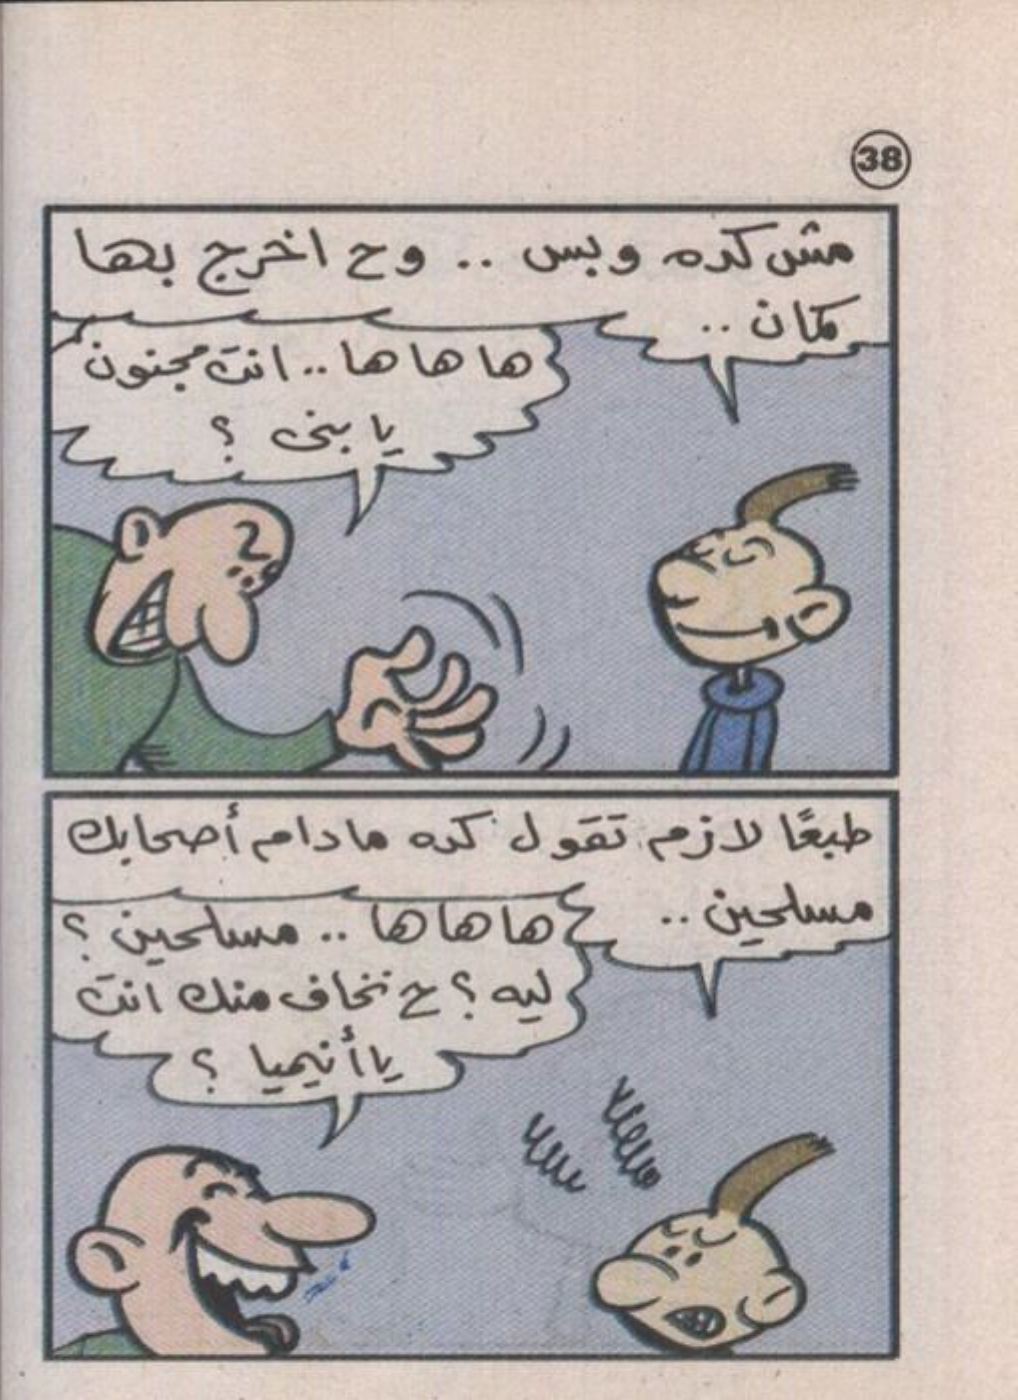 38
مش كده وبس .. وح اخرج بها
كمان ..
ها ها ها .. انت مجنون
يا بنى ؟
طبعًا لازم تقول كده مادام أصحابك
مسلحين ..
ها ها ها .. مسلحين ؟
ليه ؟ ح نخاف منك انت
يا أنيميا ؟